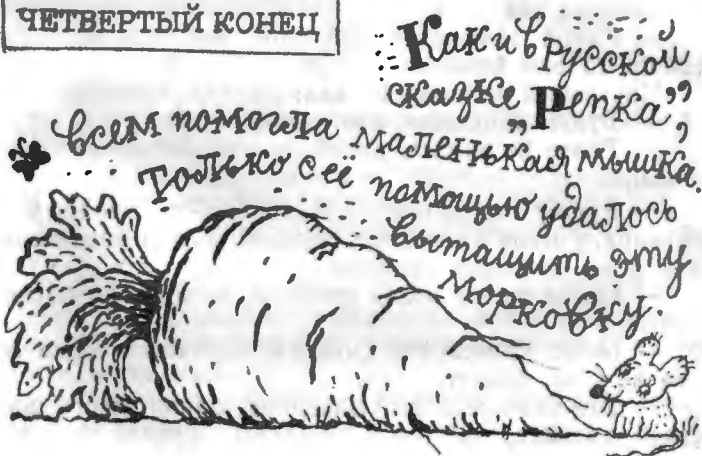 ЧЕТВЕРТЫЙ КОНЕЦ
Как и в русской
сказке „Репка”,
всем помогла маленькая мышка.
Только с её помощью удалось
вытащить эту
морковку.